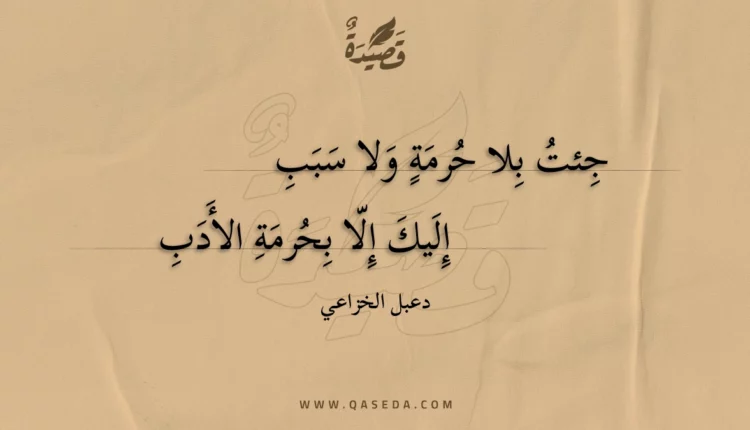 قَصِيدَةٌ
جِئتُ بِلا حُرمَةٍ وَلا سَبَبِ
إِلَيكَ إِلّا بِحُرمَةِ الأَدَبِ
دعبل الخزاعي
WWW.QASEDA.COM